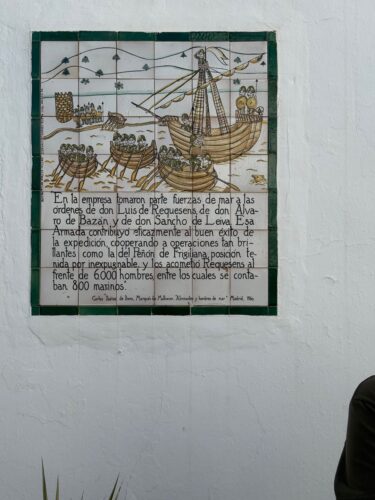 "En la empresa tomaron parte fuerzas de mar a las
órdenes de don Luis de Requesens, de don Alva-
ro de Bazán y de don Sancho de Leiva. Esa
Armada contribuyó eficazmente al buen éxito de
la expedición, cooperando a operaciones tan bri-
llantes como la del Peñón de Frigiliana, posición te-
nida por inexpugnable, y los acometió Requesens al
frente de 6.000 hombres, entre los cuales se conta-
ban 800 marinos".
Carlos Ibáñez de Ibero, Marqués de Mulhacén "Almirantes y hombres de mar". Madrid,